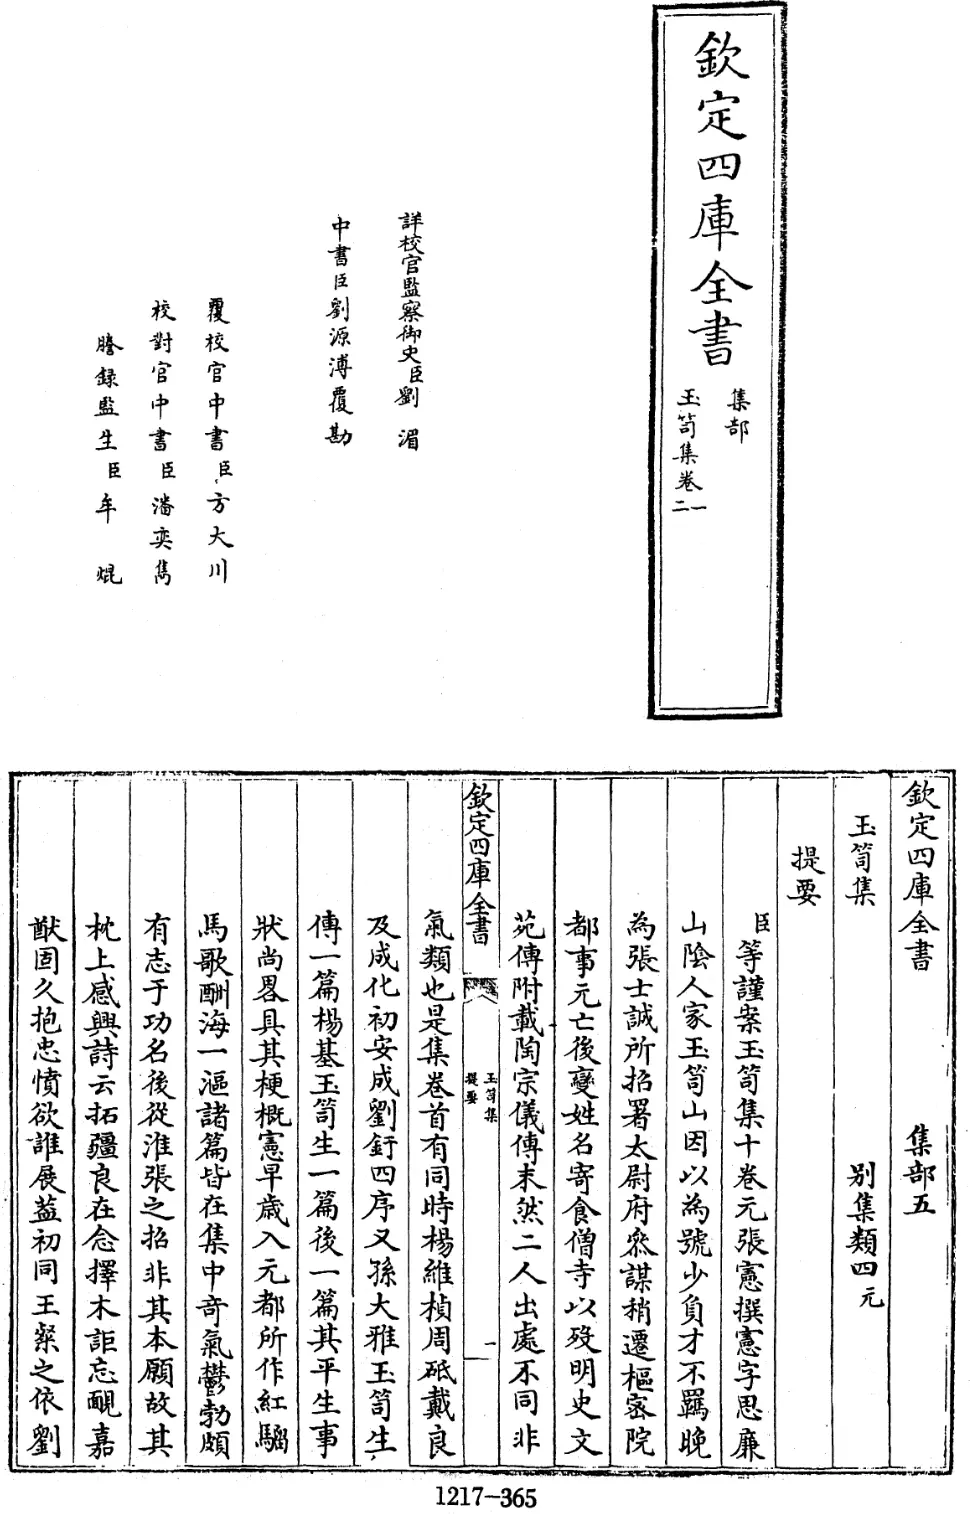 欽定四庫全書
集部
玉笥集卷一
二
詳校官監察御史臣劉湄
中書臣劉源溥覆勘
覆校官中書臣方大川
校對官中書臣潘奕雋
謄錄監生臣牟焜
欽定四庫全書 集部五
玉笥集 別集類四元
提要
臣等謹案玉笥集十卷元張憲撰憲字思廉
山陰人家玉笥山因以為號少負才不羈晚
為張士誠所招署太尉府參謀稍遷樞密院
都事元亡後變姓名寄食僧寺以歿明史文
苑傳附載陶宗儀傳末然二人出處不同非
欽定四庫全書
玉笥集
提要
一
氣類也是集卷首有同時楊維楨周砥戴良
及成化初安成劉釪四序又孫大雅玉笥生
傳一篇楊基玉笥生一篇後一篇其平生事
狀尚畧具其梗概憲早歲入元都所作紅騮
馬歌酬海一漚諸篇皆在集中奇氣鬱勃頗
有志于功名後從淮張之招非其本願故其
枕上感興詩云拓疆良在念擇木詎忘覯嘉
猷固久抱忠憤欲誰展葢初同王粲之依劉
1217-365